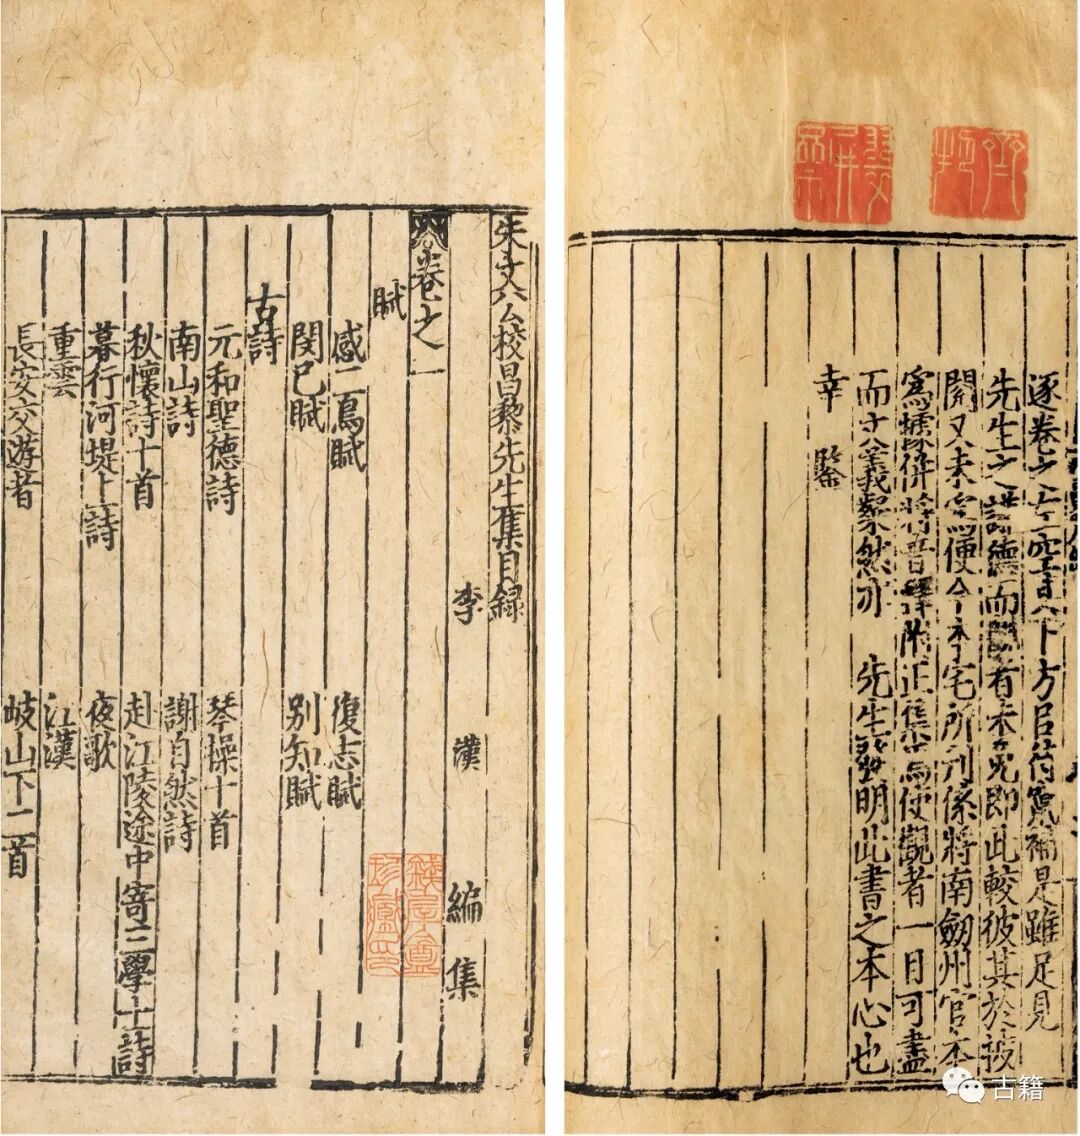 逐卷之左空下方竄補是雖足見
先生之謙德而覽者未免即此較彼其於披
閱又未為便今本宅所刊係將南劒州官本
為據併將音釋附正集焉使觀者一目可盡
而文義粲然亦　先生發明此書之本心也
幸　鑒
朱文公校昌黎先生集目録
李　漢　編　集
卷之一
賦
感二鳥賦　復志賦
閔已賦　别知賦
古詩
元和聖德詩　琴操十首
南山詩　謝自然詩
秋懷詩十首　赴江陵途中寄三學士詩
暮行河堤上詩　夜歌
重雲　江漢
長安交游者　岐山下二首
古籍